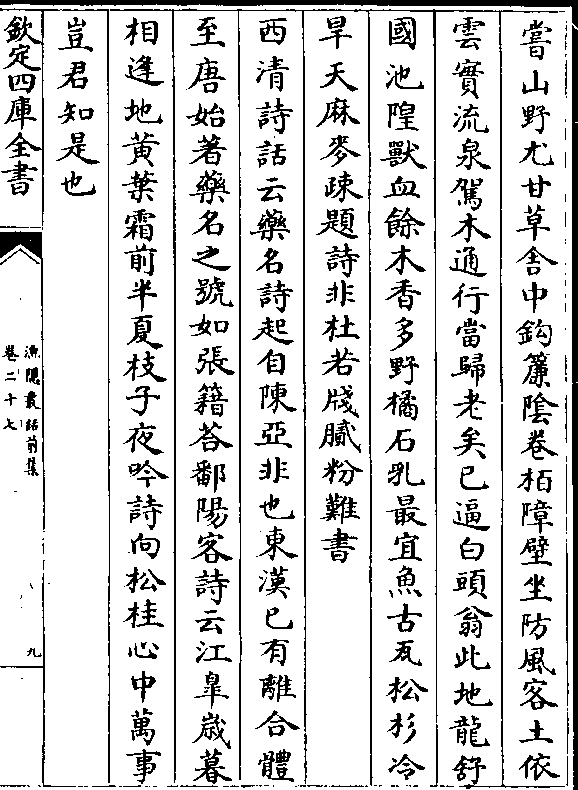 嘗山野尤甘草舎中鈎簾隂卷栢障壁坐防風客土依
雲實流泉駕木通行當歸老矣已逼白頭翁此地龍舒
國池隍獸血餘木香多野橘石乳最宜魚古瓦松杉冷
旱天麻麥疎題詩非杜若牋膩粉難書
西清詩話云藥名詩起自陳亞非也東漢已有離合體
至唐始著藥名之號如張籍荅鄱陽客詩云江臯歲暮
相逢地黃葉霜前半夏枝子夜吟詩向松桂心中萬事
豈君知是也
欽定四庫全書
漁隱叢話前集
卷二十七
九